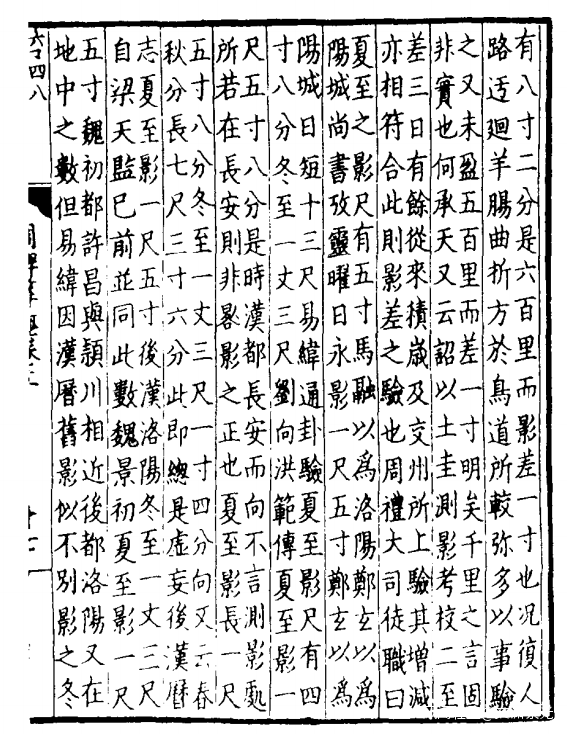 有八寸二分是六百里而影差一寸也况復人
路迂迴羊腸曲折方於鳥道所較弥多以事驗
之又未盈五百里而差一寸明矣千里之言固
非實也何承天又云詔以土圭測影考校二至
差三日有餘從來積歲及交州所上驗其增減
亦相符合此則影差之驗也周禮大司徒職曰
夏至之影尺有五寸馬融以為洛陽鄭玄以為
陽城尚書攷靈曜日永影一尺五寸鄭玄以為
陽城日短十三尺易緯通卦驗夏至影尺有四
寸八分冬至一丈三尺劉向洪範傳夏至影一
尺五寸八分是時漢都長安而向不言測影處
所若在長安則非晷影之正也夏至影長一尺
五寸八分冬至一丈三尺一寸四分向又云春
秋分長七尺三寸六分此即總是虛妄後漢曆
志夏至影一尺五寸後漢洛陽冬至一丈三尺
自梁天監已前並同此數魏景初夏至影一尺
五寸魏初都許昌與潁川相近後都洛陽又在
地中之數但易緯因漢曆舊影似不別影之冬